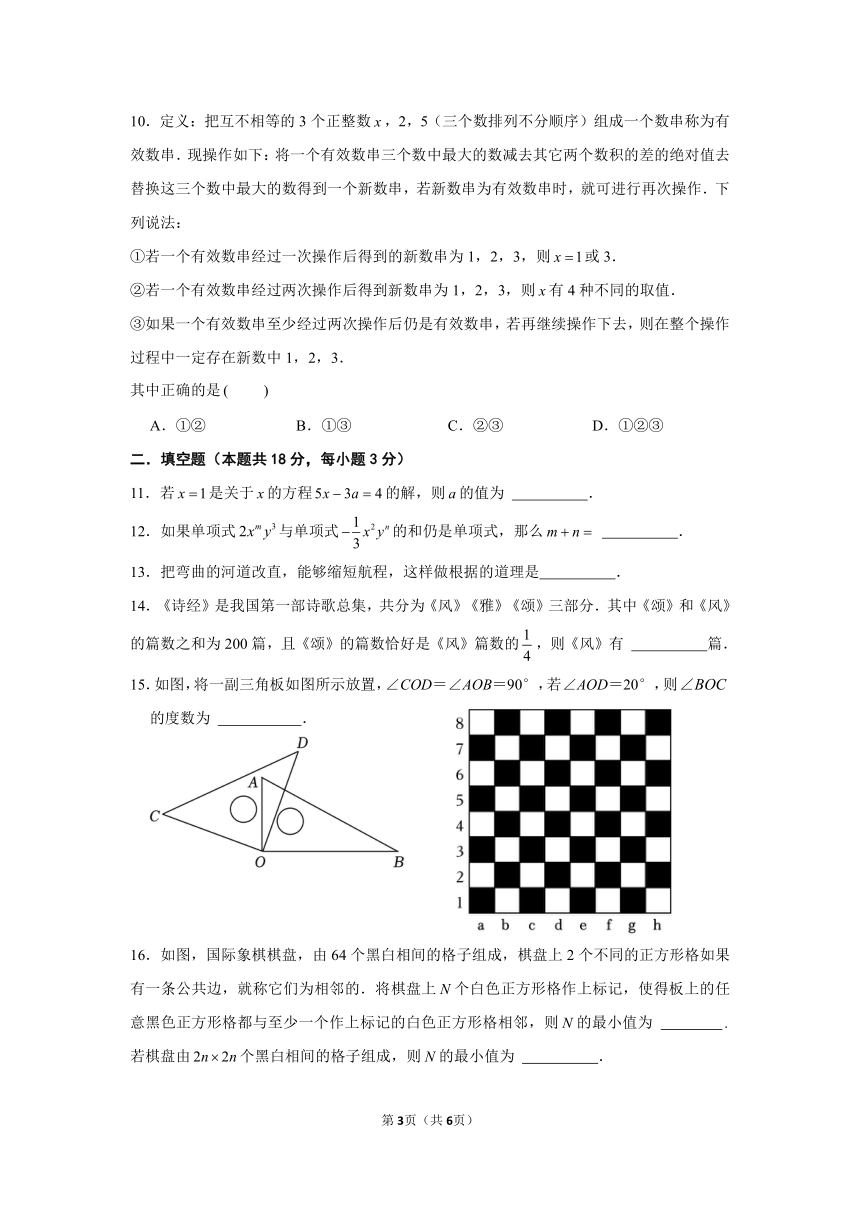 10．定义：把互不相等的3个正整数x，2，5（三个数排列不分顺序）组成一个数串称为有
效数串．现操作如下：将一个有效数串三个数中最大的数减去其它两个数积的差的绝对值去
替换这三个数中最大的数得到一个新数串，若新数串为有效数串时，就可进行再次操作．下
列说法：
①若一个有效数串经过一次操作后得到的新数串为1，2，3，则x=1或3．
②若一个有效数串经过两次操作后得到新数串为1，2，3，则x有4种不同的取值．
③如果一个有效数串至少经过两次操作后仍是有效数串，若再继续操作下去，则在整个操作
过程中一定存在新数中1，2，3．
其中正确的是(    )
A．①② B．①③ C．②③ D．①②③
二．填空题（本题共18分，每小题3分）
11．若x=1是关于x的方程5x−3a=4的解，则a的值为 ______．
12．如果单项式2x^m y^3与单项式−1/3 x^2 y^n的和仍是单项式，那么m+n= ______．
13．把弯曲的河道改直，能够缩短航程，这样做根据的道理是______．
14．《诗经》是我国第一部诗歌总集，共分为《风》《雅》《颂》三部分．其中《颂》和《风》
的篇数之和为200篇，且《颂》的篇数恰好是《风》篇数的1/4，则《风》有 ______篇．
15．如图，将一副三角板如图所示放置，∠COD＝∠AOB＝90°，若∠AOD＝20°，则∠BOC
的度数为 ______．
D
A
C
O
B
8
7
6
5
4
3
2
1
a b c d e f g h
16．如图，国际象棋棋盘，由64个黑白相间的格子组成，棋盘上2个不同的正方形格如果
有一条公共边，就称它们为相邻的．将棋盘上N个白色正方形格作上标记，使得板上的任
意黑色正方形格都与至少一个作上标记的白色正方形格相邻，则N的最小值为 ______．
若棋盘由2n×2n个黑白相间的格子组成，则N的最小值为 ______．
第3页（共6页）